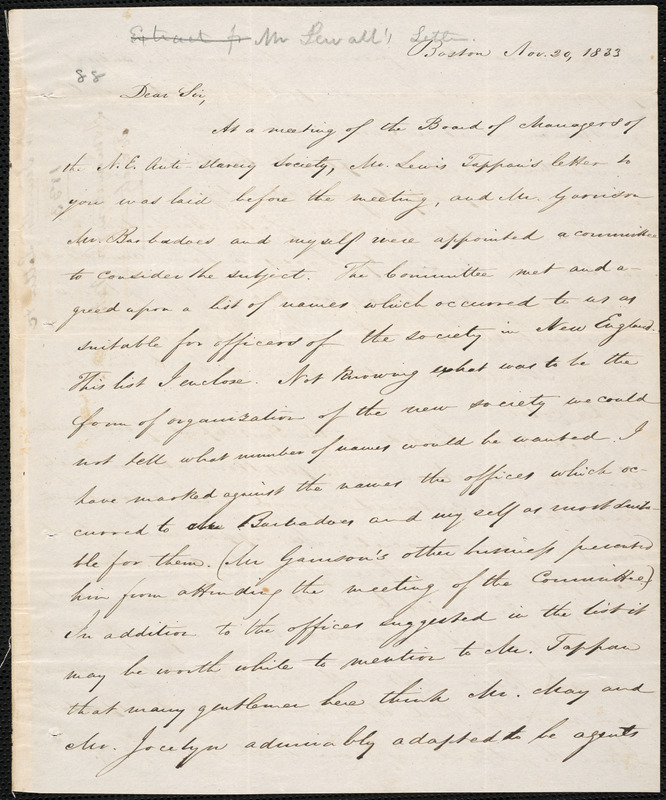 Extract fr Mr Sewall's Letter.
Boston Nov. 20, 1833
88
Dear Sir,
At a meeting of the Board of Managers of
the N. E. Anti-Slavery Society, Mr. Lewis Tappan's letter to
you was laid before the meeting, and Mr. Garrison
Mr. Barbadoes and myself were appointed a committee
to consider the subject. The Committee met and a-
greed upon a list of names which occurred to us as
suitable for officers of the society in New England.
This list I enclose. Not knowing what was to be the
form of organization of the new society we could
not tell what number of names would be wanted. I
have marked against the names the offices which oc-
curred to Mr Barbadoes and myself as most suita-
ble for them. (Mr Garrison's other business prevented
him from attending the meeting of the Committee.)
In addition to the offices suggested in the list it
may be worth while to mention to Mr. Tappan
that many gentlemen here think Mr. May and
Mr. Jocelyn admirably adapted to be agents